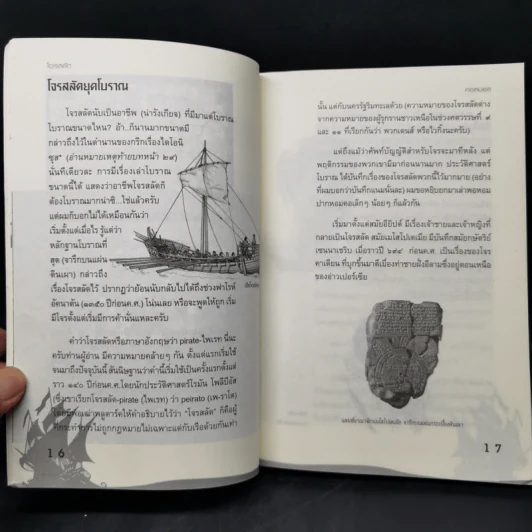 โจรสลัด
โจรสลัดยุคโบราณ
โจรสลัดนับเป็นอาชีพ (น่ารังเกียจ) ที่มีมาแต่โบราณ
โบราณขนาดไหน? อ้า..ก็นานมากขนาดมี
กล่าวถึงไว้ในตำนานของกรีกเรื่องไดโอนี
ซุส* (อ่านหมายเหตุท้ายบทหน้า ๒๙)
นั่นทีเดียวละ การมีเรื่องเล่าโบราณ
ขนาดนี้ได้ แสดงว่าอาชีพโจรสลัดก็
ต้องโบราณมากน่าซิ...ใช่แล้วครับ
แต่ผมก็บอกไม่ได้เหมือนกันว่า
เริ่มตั้งแต่เมื่อไร รู้แต่ว่า
หลักฐานโบราณที่
สุด (จารึกบนแผ่น
ดินเผา) กล่าวถึง
เรื่องโจรสลัดไว้ ปรากฏว่าย้อนกลับไปได้ถึงช่วงฟาโรห์
อัคนาตัน (๑๓๕๐ ปีก่อนค.ศ.) โน่นเลย หรือจะพูดให้ถูก เริ่ม
มีโจรตั้งแต่เริ่มมีการค้านั่นแหละครับ
คำว่าโจรสลัดหรือภาษาอังกฤษว่า pirate-ไพเรท นี่นะ
ครับท่านผู้อ่าน มีความหมายคล้าย ๆ กัน ตั้งแต่แรกเริ่มใช้
จนมาถึงปัจจุบันนี้ สันนิษฐานว่าคำนี้เริ่มใช้เป็นครั้งแรกตั้งแต่
ราว ๑๔๐ ปีก่อนค.ศ.โดยนักประวัติศาสตร์โรมัน โพลีบีอัส
(ซึ่งเขาเรียกโจรสลัด-pirate (ไพเรท) ว่า peirato (เพ-ราโต)
ผู้กระทำการไม่ถูกกฎหมายไม่เฉพาะแต่กับเรือด้วยกันเท่า
16
นั้น แต่กับนครรัฐริมทะเลด้วย (ความหมายของโจรสลัดต่าง
จากความหมายของผู้รุกรานชาวเหนือในช่วงศตวรรษที่ ๙
และ ๑๑ ที่เรียกกันว่า พวกเดนส์ หรือไวกิ้งนะครับ)
แต่ถึงแม้ว่าศัพท์บัญญัติสำหรับโจรจะมาทีหลัง แต่
พฤติกรรมของพวกเขามีมาก่อนนานมาก ประวัติศาสตร์
โบราณ ได้บันทึกเรื่องของโจรสลัดพวกนี้ไว้มากมาย (อย่าง
ที่ผมบอกว่าบันทึกแน่นั่นละ) ผมขอหยิบยกมาเล่าพอหอม
ปากหอมคอเล็กๆ น้อยๆ ก็แล้วกัน
เริ่มมาตั้งแต่สมัยอียิปต์ มีเรื่องเจ้าชายและเจ้าหญิงที่
กลายเป็นโจรสลัด สมัยเมโสโปเตเมีย มีบันทึกสมัยกษัตริย์
เซนนาเชริบ เมื่อราวปี ๖๙๔ ก่อนค.ศ. เป็นเรื่องของโจร
คาเดียน ที่บุกขึ้นมาตีเมืองท่าชายฝั่งอีลามซึ่งอยู่ตอนเหนือ
ของอ่าวเปอร์เซีย
17